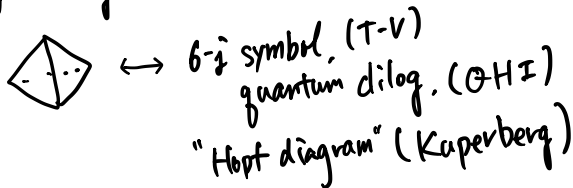 ↔ 6-j symbol. (T-V)
quantum dilog. (QHI)
"Hopf diagram" (Kuperberg)